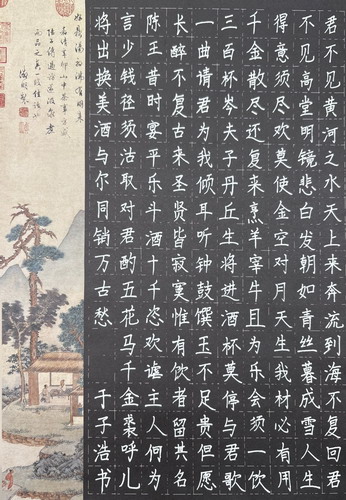 君不见黄河之水天上来奔流到海不复回君
不见高堂明镜悲白发朝如青丝暮成雪人生
得意须尽欢莫使金空对月天生我材必有用
千金散尽还复来烹羊宰牛且为乐会须一饮
三百杯岑夫子丹丘生将进酒杯莫停与君歌
一曲情君为我倾耳听钟鼓馔玉不足贵但愿
长醉不复古来圣贤皆寂寞惟有饮者留其名
陈王昔时宴平乐斗酒十千恣欢谑主人何为
言少钱径须沽取对君酌五花马千金裘呼儿
将出换美酒与尔同销万古愁 于子浩书